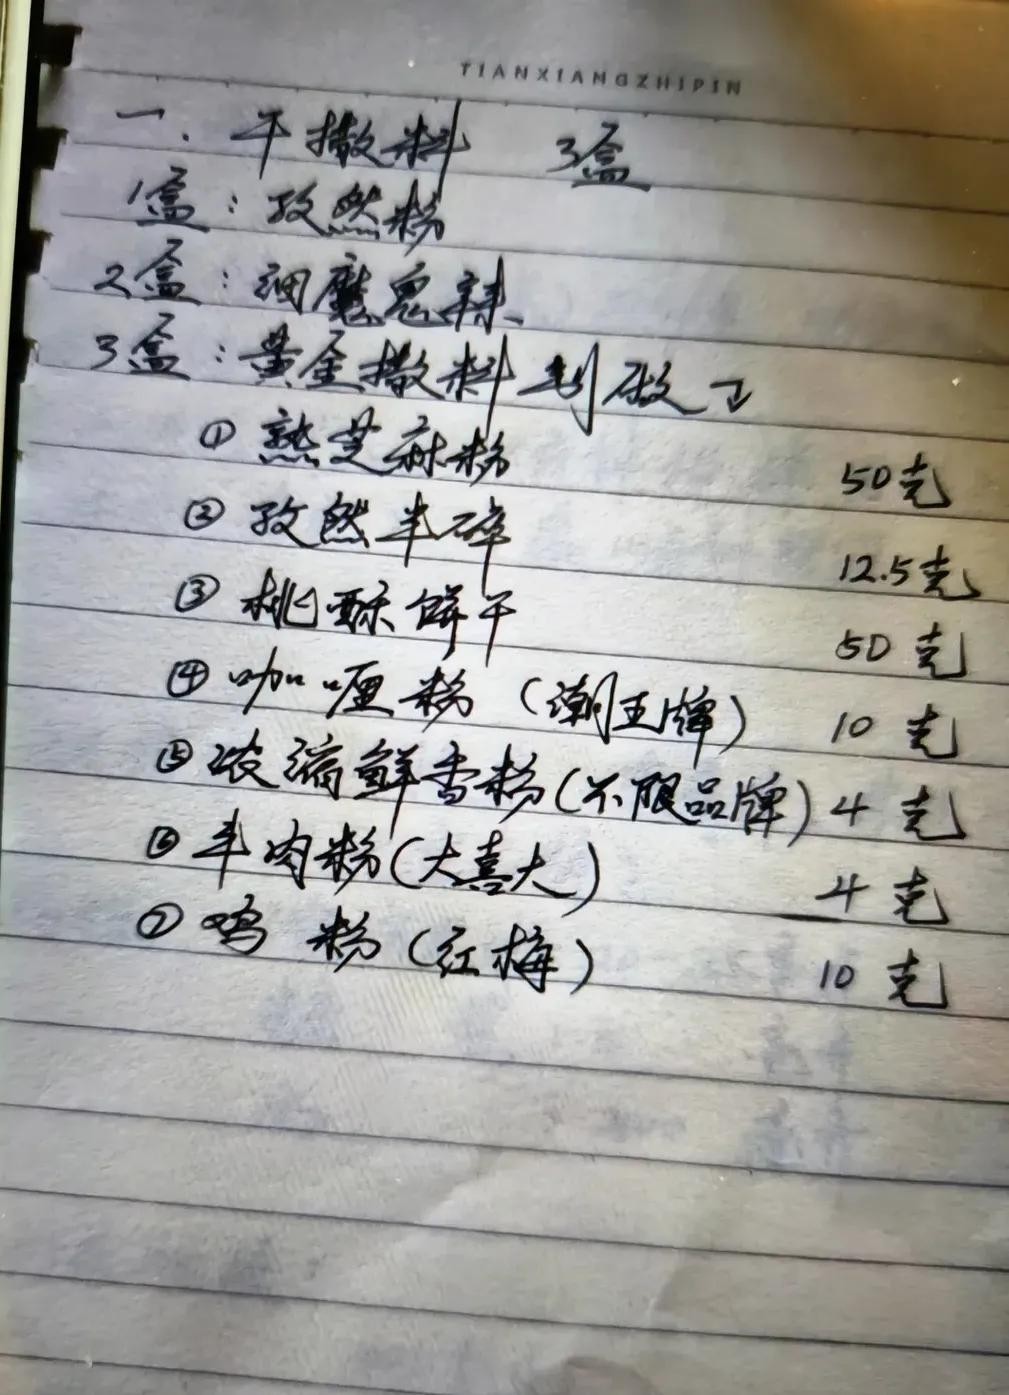 TIANXIANGZHIPIN
一. 干撒料 3盒
1盒：孜然粉
2盒：细魔鬼辣
3盒：黄金撒料制做
① 熟芝麻粉 50克
② 孜然半碎 12.5克
③ 桃酥饼干 50克
④ 咖喱粉（潮王牌） 10克
⑤ 浓缩鲜香粉（不限品牌） 4克
⑥ 羊肉粉（大喜大） 4克
⑦ 鸡粉（红梅） 10克